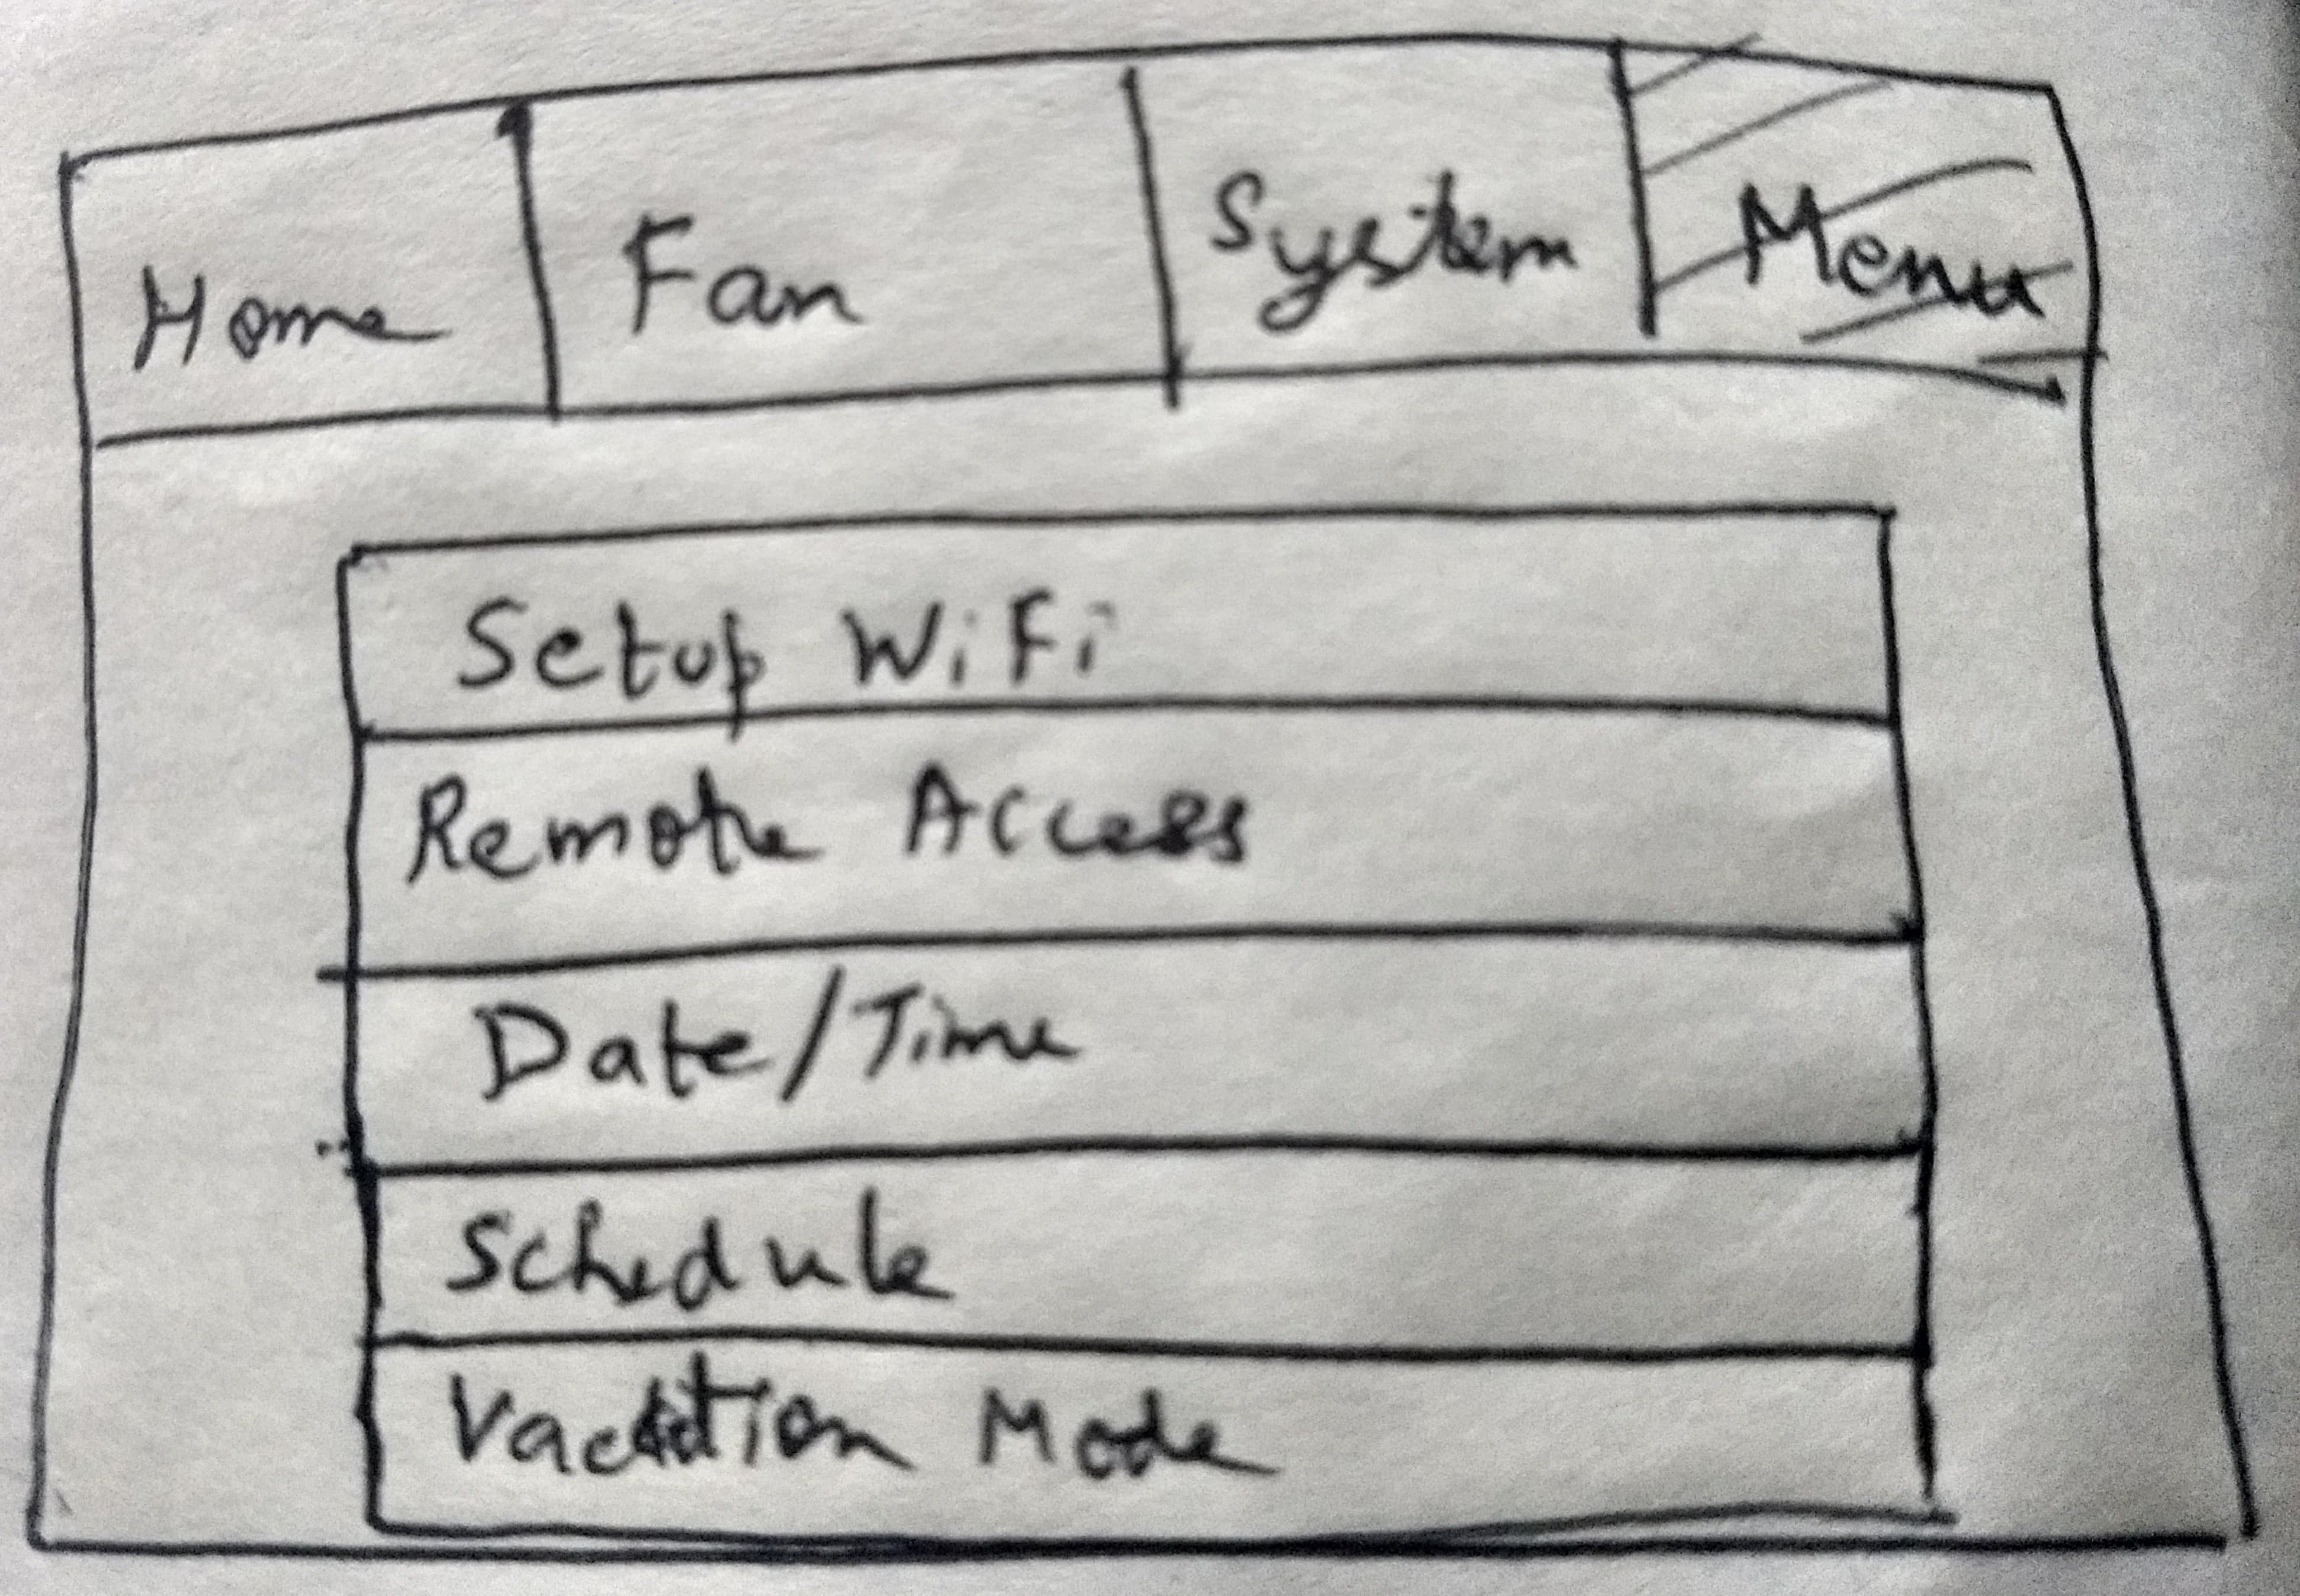 Home
Fan
System
Menu
Setup WiFi
Remote Access
Date/Time
Schedule
Vacation Mode